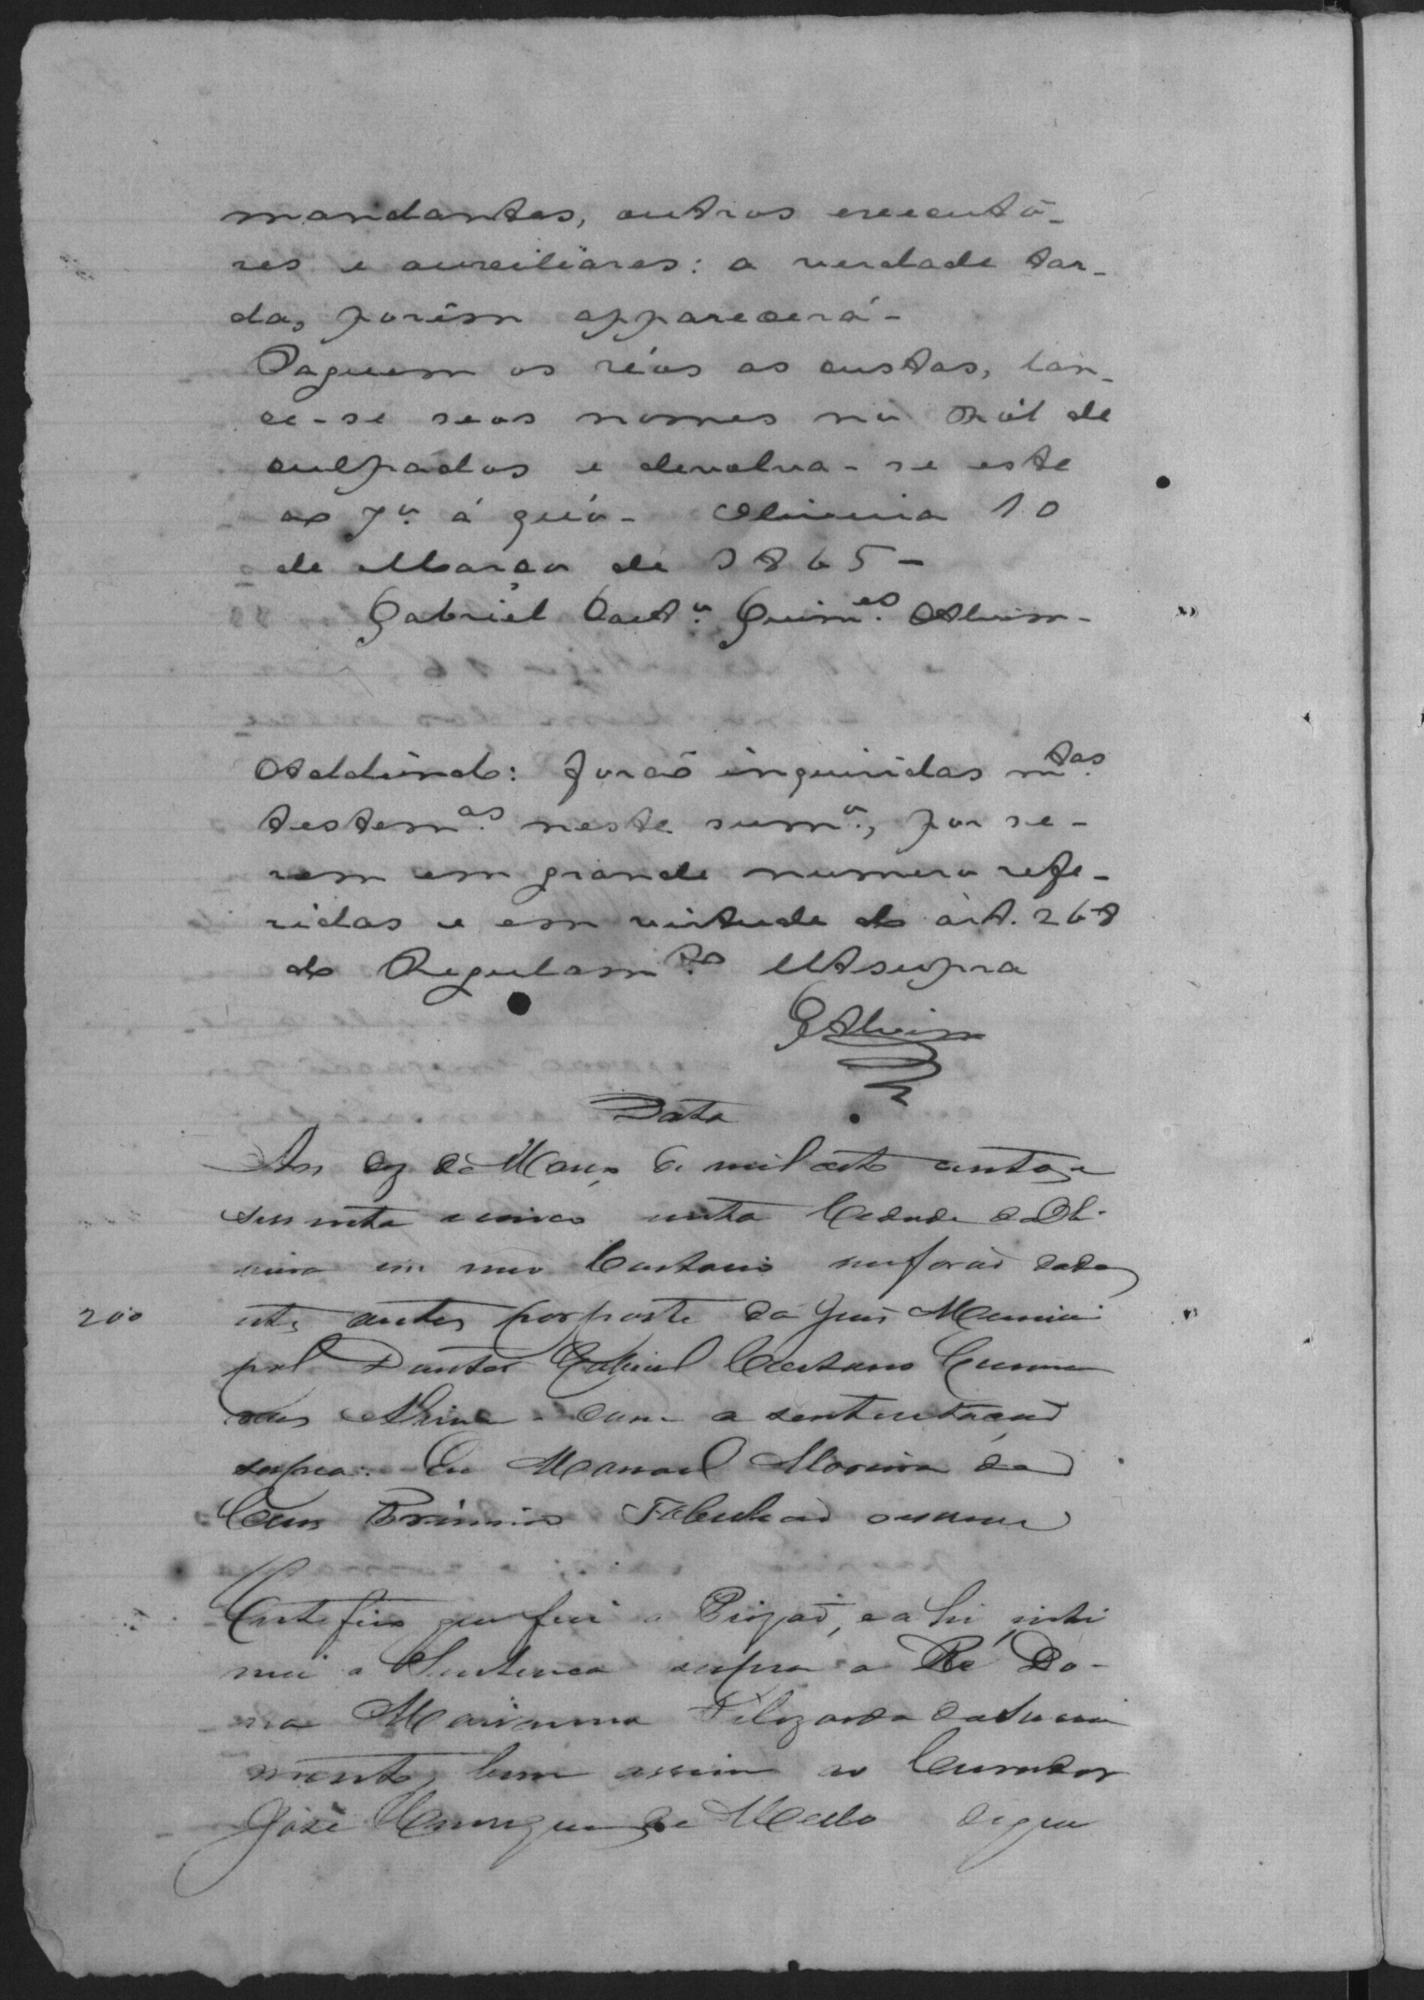 mandantes, outros executo-
res e auxiliares: a verdade tar-
da, porêm apparecerá-
Paguem os réos as custas, lan-
ce-se seos nomes no Rol de
culpados e devolva-se este
ao Jº á quó- Oliveira 10
de Março de 1865-
Gabriel Caetº Guimes Alvim-
Addindo: Forão inquiridas mtas
testemas neste sumº, por se-
rem em grande numero refe-
ridas e em virtude do art. 268
do Regulamto Utsupra
GAlvim
Data
Aos dez de Março de mil oito centos e
sessenta e cinco nesta Cidade de Oli-
veira em meo Cartorio me forão dados
estes autos por parte do Juis Munici
pal Doutor Gabriel Caetano Guima
raes Alvim com a sentença
supra. Eu Manoel Moreira da
Tabelião
200
Certifico que fui a Prizão, e ahi inti
mei a Sentença supra a Ré Do-
na Felizarda do Naci
mento, bem assim ao Curador
José de Mello do que